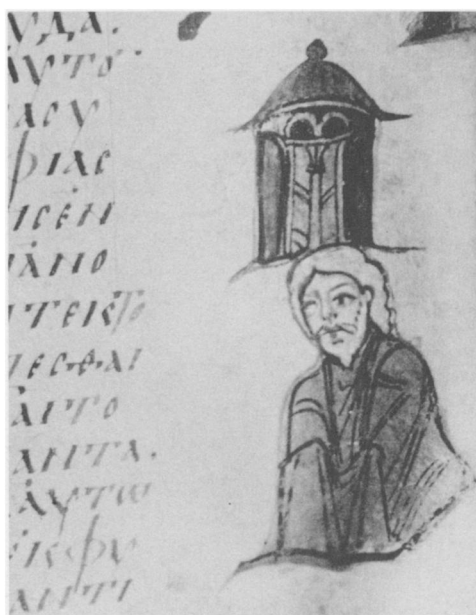 ΥΔΑ.
ΑΥΤΟ
ΑϹΥ
ΦΙΑϹ
ΙϹΕΝ
ΑΝΟ
ΤΕΙϹΤΟ
ΕϹΘΑΙ
ΑΝΤΟ
ΑΝΤΑ.
ΑΥΤΩ
ΕΙϹΦΥ
ΑΝΤΙ